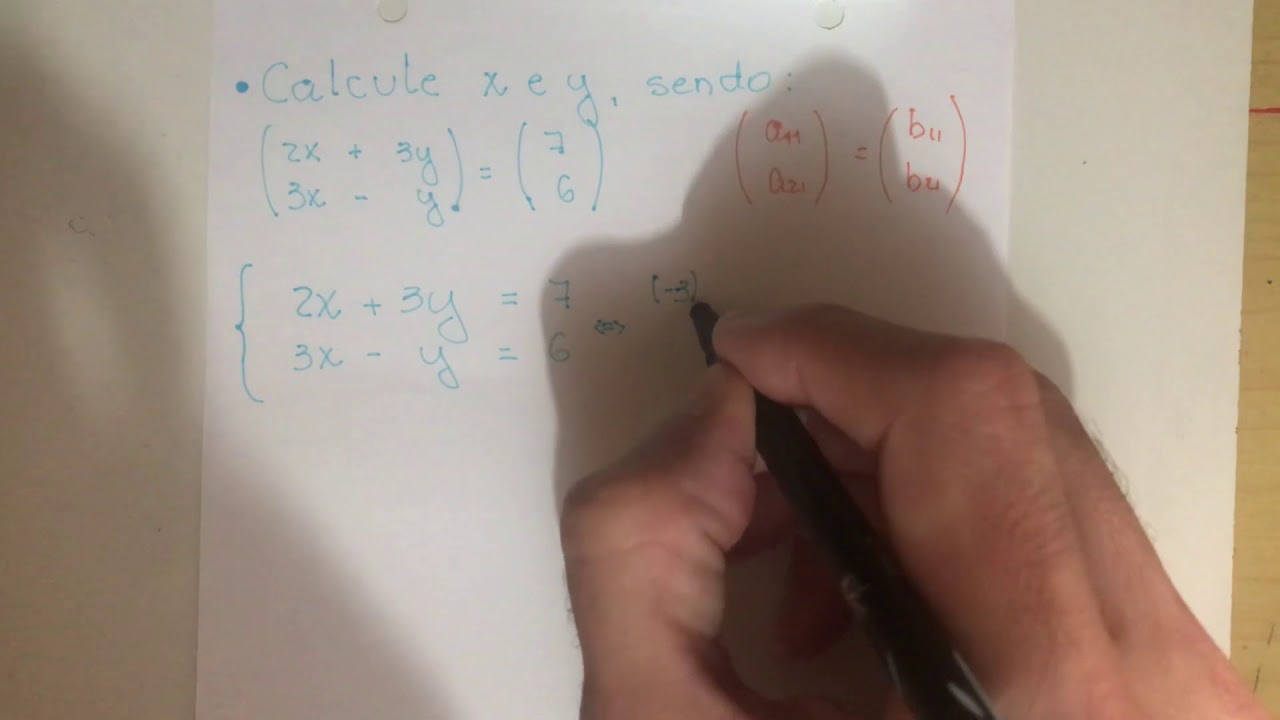 • Calcule x e y, sendo:
(2x + 3y
3x - y) = (7
6)
(a11
a21) = (b11
b21)
{ 2x + 3y = 7
3x - y = 6 ⇔ (-3)